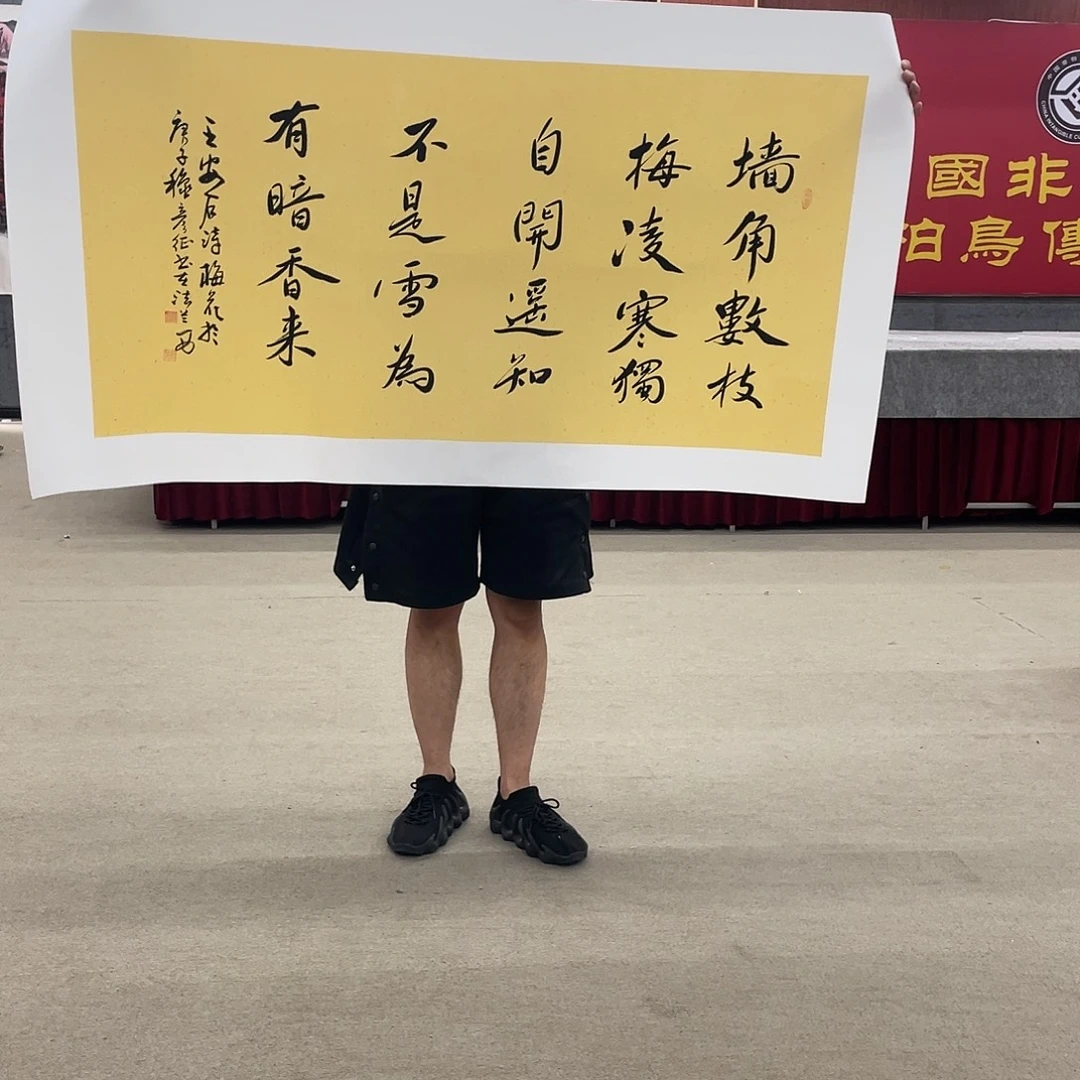 墙角數枝
梅凌寒獨
自開遥知
不是雪為
有暗香来
王安石诗梅花於
庚子穐彦征书
國非
鳥傳
CHINA INTANGIBLE CU